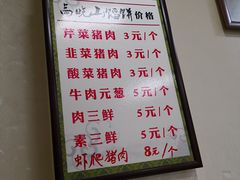 高晓山馅饼价格
芹菜猪肉 3元/个
韭菜猪肉 3元/个
酸菜猪肉 3元/个
牛肉元葱 5元/个
肉三鲜 5元/个
素三鲜 5元/个
虾爬猪肉 8元/个